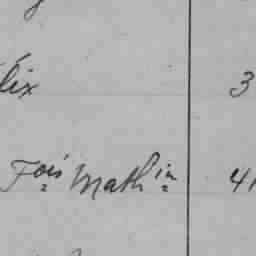 lix 3
Fois Mathin 4